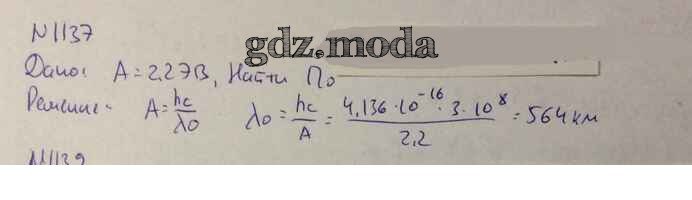 N1137
gdz.moda
Дано: A = 2,2 эВ, Найти λ₀
Решение. A = hc/λ₀ λ₀ = hc/A = 4,136·10⁻¹⁶·3·10⁸/2,2 = 564 км
N1139